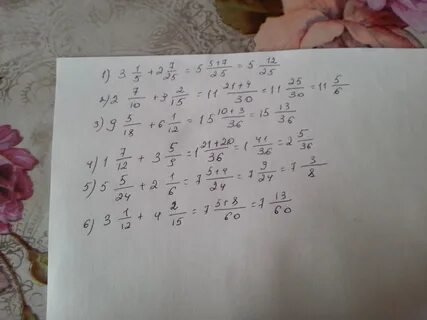 1) 3 1/5 + 2 7/25 = 5 5+7/25 = 5 12/25
2) 2 7/10 + 9 2/15 = 11 21+4/30 = 11 25/30 = 11 5/6
3) 9 5/18 + 6 1/12 = 15 10+3/36 = 15 13/36
4) 1 7/12 + 3 5/9 = 1 21+20/36 = 1 41/36 = 2 5/36
5) 5 5/24 + 2 1/6 = 7 5+4/24 = 7 9/24 = 7 3/8
6) 3 1/12 + 4 2/15 = 7 5+8/60 = 7 13/60